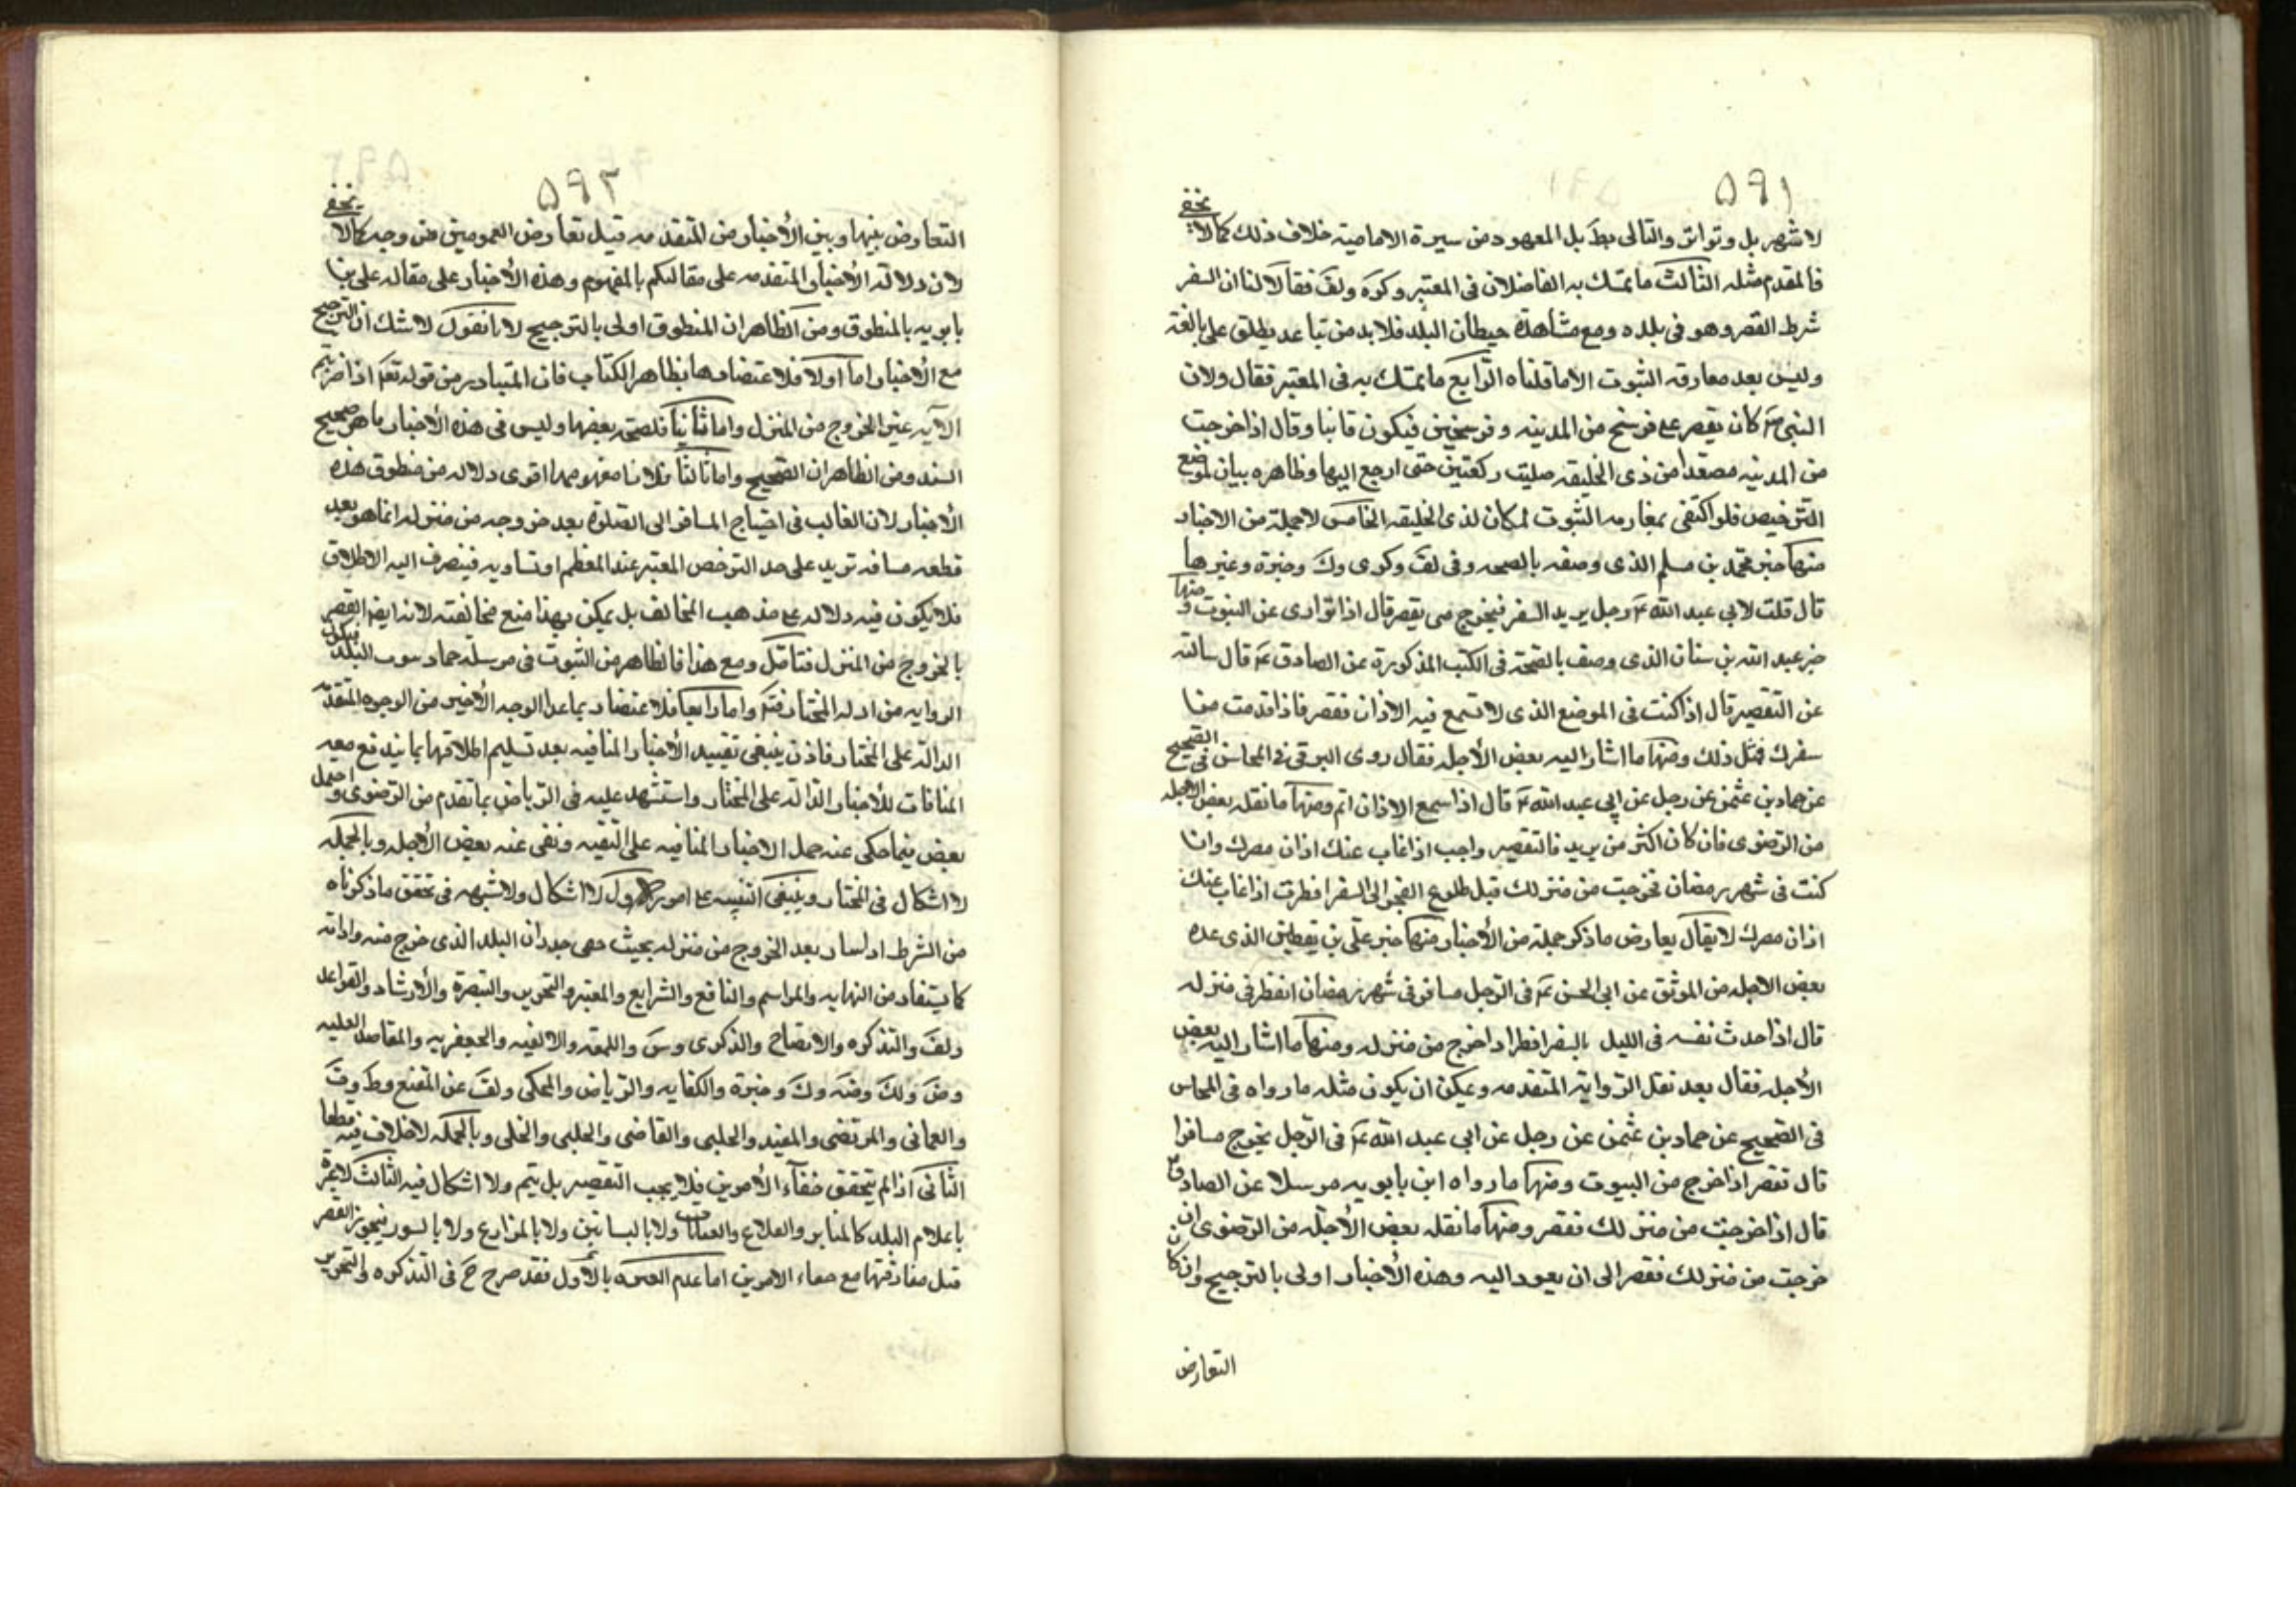 ٥٩١
لاشتهر بل وتواتر والتالى بط بل المعهود من سيرة الامامية خلاف ذلك كما لا يخفى
فالمقدم مثله الثالث ما تمسك به الفاضلان فى المعتبر وكره ولف فقالا لنا ان السفر
شرط القصر وهو فى بلده ومع مشاهدة حيطان البلد فلا بد من تباعد يطلق على بالغه
وليس بعد مفارقه البيوت الا ما قلناه الرابع ما تمسك به فى المعتبر فقال ولان
النبى ص كان يقصر على فرسخ من المدينه وفرسخين فيكون قانبا وقال اذا خرجت
من المدينه مصعدا من ذى الحليفه صليت ركعتين حتى ارجع اليها وظاهره بيان لموضع
الترخيص فلو اكتفى بمفارقه البيوت لمكان لذى الحليفه الخامس لا جملة من الاخبار
منها خبر محمد بن مسلم الذى وصفه بالصحه وفى لف وكرى وك وخيرة وغيرها
قال قلت لابي عبد الله ع رجل يريد السفر فيخرج متى يقصر قال اذا توارى عن البيوت ومنها
خبر عبد الله بن سنان الذى وصف بالصحة فى الكتب المذكورة عن الصادق ع قال سالته
عن التقصير قال اذا كنت فى الموضع الذى لا تسمع فيه الاذان فقصر فاذا قدمت من
سفرك فمثل ذلك ومنها ما اشار اليه بعض الأجله فقال روى البرقى فى المحاسن فى الصحيح
عن حماد بن عثمن عن رجل عن ابي عبد الله ع قال اذا سمع الاذان اتم ومنها ما نقله بعض الاجله
من الرضوى فان كان اكثر من بريد فالتقصير واجب اذا غاب عنك اذان مصرك وان
كنت فى شهر رمضان فخرجت من منزلك قبل طلوع الفجر الى السفر افطرت اذا غاب عنك
اذان مصرك لا يقال يعارض ما ذكر جملة من الأخبار منها خبر على بن يقطين الذى عده
بعض الاجله من الموثق عن ابى الحسن ع فى الرجل يسافر فى شهر رمضان ايفطر فى منزله
قال اذا حدث نفسه فى الليل بالسفر افطر اذا خرج من منزله ومنها ما اشار اليه بعض
الأجله فقال بعد نقل الرواية المتقدمه ويمكن ان يكون مثله ما رواه فى المحاسن
فى الصحيح عن حماد بن عثمن عن رجل عن ابى عبد الله ع فى الرجل يخرج مسافرا
قال تقصر اذا خرج من البيوت ومنها ما رواه ابن بابويه مرسلا عن الصادق ع
قال اذا خرجت من منزلك فقصر ومنها ما نقله بعض الأجلة من الرضوى ان
خرجت من منزلك فقصر الى ان يعود اليه وهذه الأخبار اولى بالترجيح وان كان
التعارض
٥٩٢
التعارض بينها وبين الأخبار من المتقدمه قبيل تعارض العمومين من وجه كما لا يخفى
لان دلالة الأخبار المتقدمه على مقالكم بالمفهوم وهذه الأخبار على مقاله على بن
بابويه بالمنطوق ومن الظاهر ان المنطوق اولى بالترجيح لانا نقول لا شك ان الترجيح
مع الأخبار اما اولا فلاعتضادها بظاهر الكتاب فان المتبادر من قوله تعم اذا ضربتم
الآيه غير الخروج من المنزل واما ثانيا فلصحة بعضها وليس فى هذه الأخبار ما هو صحيح
السند ومن الظاهر ان الصحيح واما ثالثا فلان مفهومها اقوى دلاله من منطوق هذه
الأخبار لان الغالب فى احتياج المسافر الى الصلوة بعد خروجه من منزله انما هو بعد
قطعه مسافه تزيد على حد الترخص المعتبر عند المعظم او تساويه فينصرف اليه الاطلاق
فلا يكون فيه دلاله على مذهب المخالف بل يمكن بهذا منع مخالفته لانه ايضا القصر
بالخروج من المنزل فتامل ومع هذا فالظاهر من البيوت فى مرسلة حماد بيوت البلد فيكون
الروايه من ادله المختار فتم واما رابعا فلاعتضاد بما عدا الوجه الأخير من الوجوه المتقدمه
الدالة على المختار فاذن ينبغى تقييد الأخبار المنافيه بعد تسليم اطلاقها بما يندفع معه
المنافات للأخبار الدالة على المختار واستشهد عليه فى الرياض بما تقدم من الرضوى واحتمل
بعض فيما حكى عنه حمل الاخبار المنافيه على التقيه ونفى عنه بعض الأجله وبالجمله
لا اشكال فى المختار وينبغى التنبيه على امور الاول لا اشكال ولا شبهه فى تحقق ما ذكرناه
من الشرط اذا سار بعد الخروج من منزله بحيث خفى جدران البلد الذى خرج منه واذانه
كما يستفاد من النهايه والمراسم والنافع والشرايع والمعتبر والتحرير والتبصرة والأرشاد والقواعد
ولف والتذكره والايضاح والذكرى وس واللمعه والالفيه والجعفريه والمقاصد العليه
وض ولك وضه وك وخيرة والكفايه والرياض والمحكى ولف عن المقنع وط وف
والعمانى والمرتضى والمفيد والحلبى والقاضى والحلبى والحلى وبالجمله لا خلاف فيه قطعا
الثانى اذا لم يتحقق خفآء الأمرين فلا يجب التقصير بل يتم ولا اشكال فيه الثالث لا عبرة
باعلام البلد كالمنابر والقلاع والقباب ولا بالبساتين ولا بالمزارع ولا بالسور فيجوز القصر
قبل مفارقتها مع خفاء الامرين اما عدم العبره بالأول فقد صرح به فى التذكره والتحرير